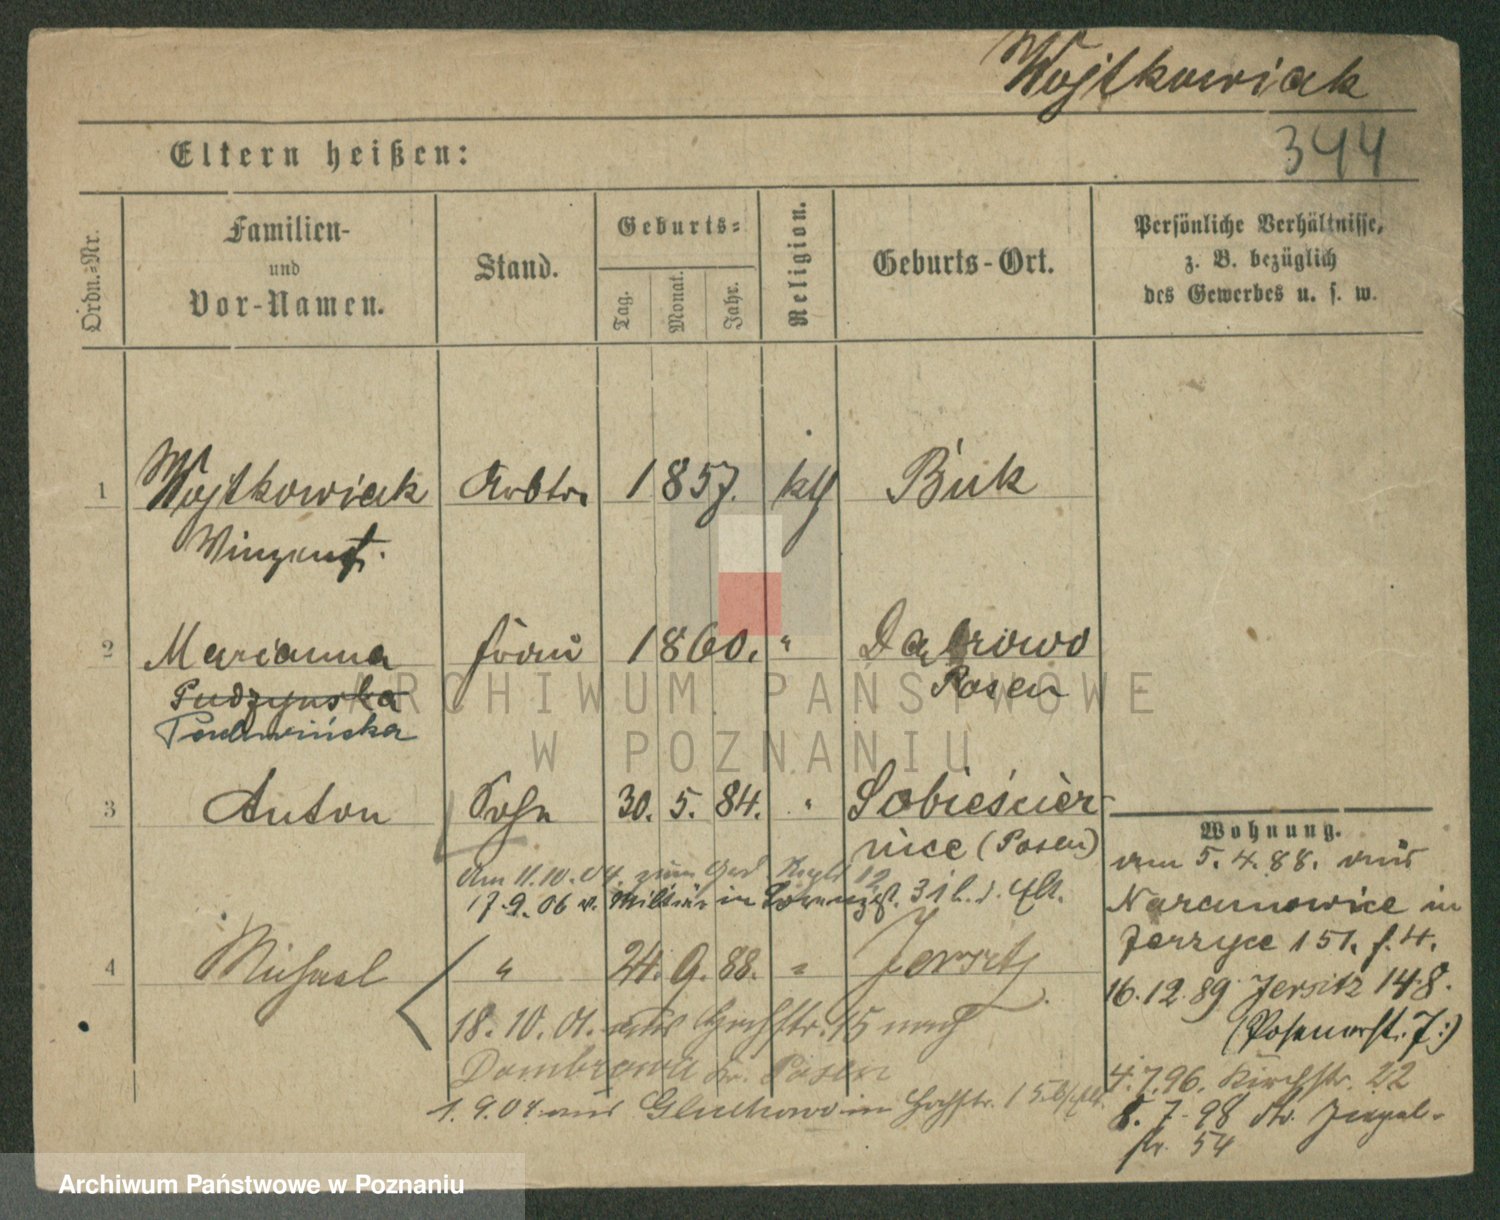 Wojtkowiak
344
Eltern heißen:
Ordn.=Nr.
Familien-
und
Vor-Namen.
Stand.
Geburts=
Tag.
Monat.
Jahr.
Religion.
Geburts-Ort.
Persönliche Verhältnisse,
z. B. bezüglich
des Gewerbes u. s. w.
1 Wojtkowiak Arbtr. 1857. kth Buk
Vinzent.
2 Marianna Frau 1860. " Dabrowo
Pudzynska Posen
ARCHIWUM PAŃSTWOWE
W POZNANIU
3 Anton Sohn 30. 5. 84. " Sobieśier
nice (Posen)
Am 11.10.04. zum
17.9.06 v. Militär in
4 Michael " 24. 9. 88. " Jersitz
18.10.01. aus Hochstr. 15 nach
Dombrowa Kr. Posen
1.9.04. aus Gluchowo in Hochstr. 15
Wohnung.
am 5.4.88. aus
Naramowice in
Jerzyce 151. f. 4.
16.12.89 Jersitz 148.
(Posenerst. 7.)
4.7.96. Kirchstr. 22
8.7.98
str. 54
Archiwum Państwowe w Poznaniu